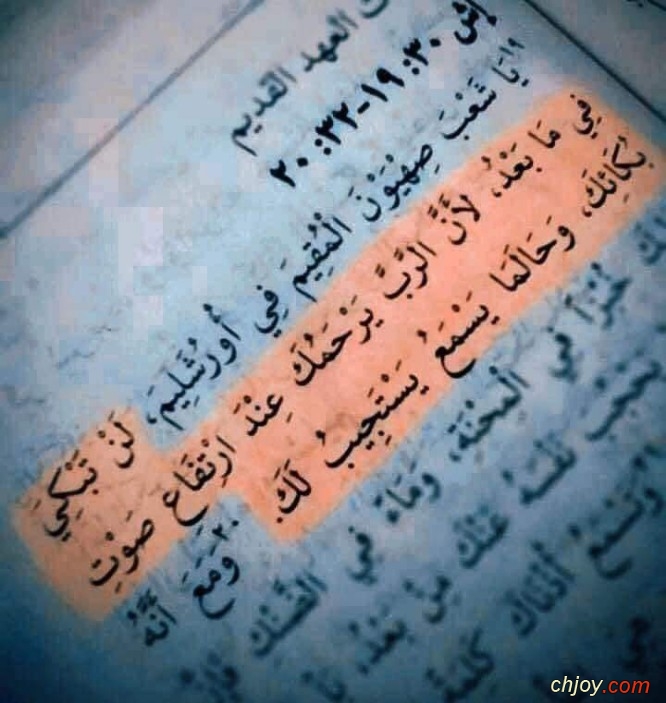 العهد القديم
إش ٣٠:١٩-٣٢:٢٠
١٩ يَا شَعْبَ صِهْيَوْنَ الْمُقِيمَ فِي أُورُشَلِيمَ، لَنْ تَبْكِيَ
فِي مَا بَعْدُ، لأَنَّ الرَّبَّ يَرْحَمُكَ عِنْدَ ارْتِفَاعِ صَوْتِ
بُكَائِكَ، وَحَالَمَا يَسْمَعُ يَسْتَجِيبُ لَكَ. ٢٠ وَمَعَ أَنَّهُ
خُبْزاً فِي الْمِحْنَةِ، وَمَاءً فِي الضَّنْكِ
نَفْسَهُ عَنْكَ مِنْ بَعْدُ،
وَتَسْمَعُ أُذُنَاكَ كَلِمَةً
chjoy.com